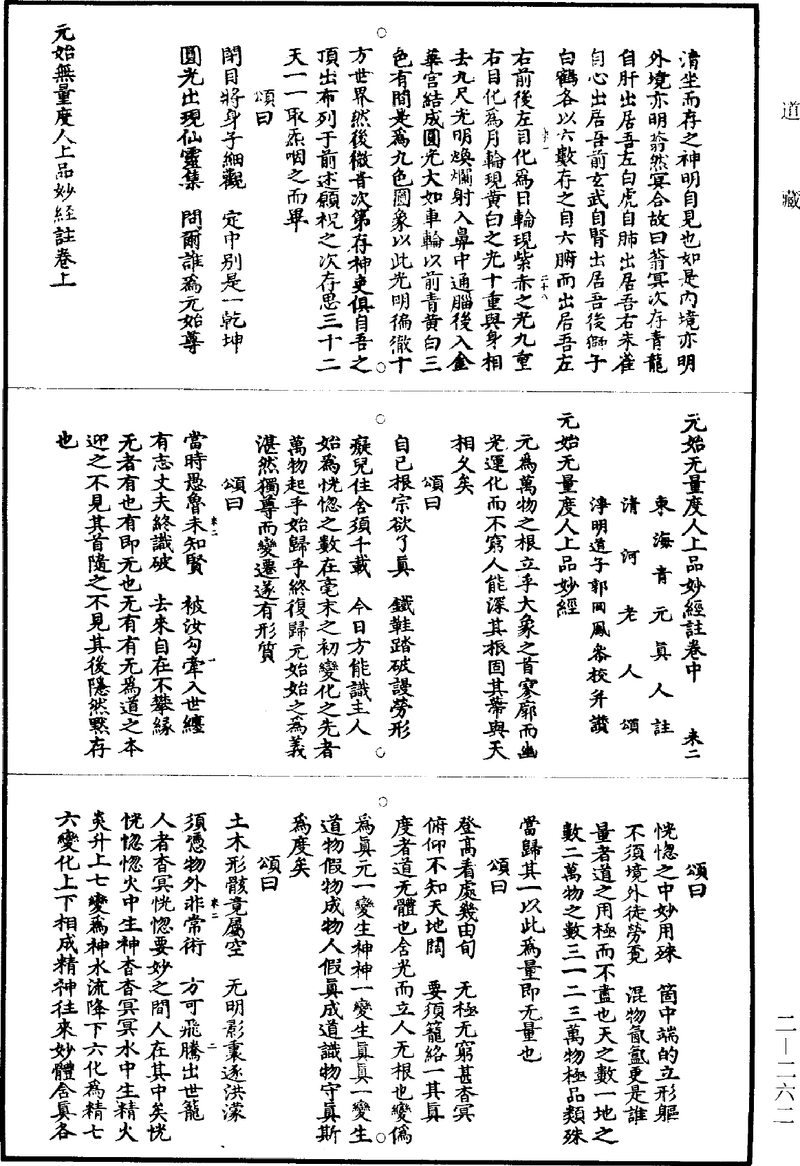 道藏
清坐而存之神明自見也如是內境亦明
外境亦明蓊然冥合故曰蓊冥次存青龍
自肝出居吾左白虎自肺出居吾右朱雀
自心出居吾前玄武自腎出居吾後獅子
白鶴各以六數存之自六腑而出居吾左
右前後左目化為日輪現紫赤之光九重
右目化為月輪現黃白之光十重與身相
去九尺光明煥爛射入鼻中通腦後入金
華宮結成圓光大如車輪以前青黃白三
色有間是為九色圓象以此光明徧徹十
方世界然後微音次第存神吏俱自吾之
頂出布列于前述願祝之次存思三十二
天一一取炁咽之而畢
頌曰
閉目將身子細觀　定中別是一乾坤
圓光出現仙靈集　問爾誰為元始尊
元始無量度人上品妙經註卷上
元始无量度人上品妙經註卷中　來二
東海青元真人註
清河老人頌
淨明道子郭岡鳳參校并讚
元始无量度人上品妙經
元為萬物之根立乎大象之首寥廓而幽
光運化而不窮人能深其根固其蒂與天
相久矣
頌曰
自己根宗欲了真　鐵鞋踏破謾勞形
癡兒住舍須千載　今日方能識主人
始為恍惚之數在毫末之初變化之先者
萬物起乎始歸乎終復歸元始始之為義
湛然獨尊而變遷遂有形質
頌曰
當時愚魯未知賢　被汝勾牽入世纏
有志丈夫終識破　去來自在不攀緣
无者有也有即无也无有有无為道之本
迎之不見其首隨之不見其後隱然默存
也
頌曰
恍惚之中妙用殊　箇中端的立形軀
不須境外徒勞覓　混物氤氳更是誰
量者道之用極而不盡也天之數一地之
數二萬物之數三一二三萬物極品類殊
當歸其一以此為量即无量也
頌曰
登高看處幾由旬　无極无窮甚杳冥
俯仰不知天地闊　要須籠絡一其真
度者道无體也含光而立人无根也變偽
為真元一變生神神一變生真真一變生
道物假物成物人假真成道識物守真斯
為度矣
頌曰
土木形骸竟屬空　无明影裏逐洪濛
須憑物外非常術　方可飛騰出世籠
人者杳冥恍惚要妙之間人在其中矣恍
恍惚惚火中生神杳杳冥冥水中生精火
炎升上七變為神水流降下六化為精七
六變化上下相成精神往來妙體含真各
二—二六二